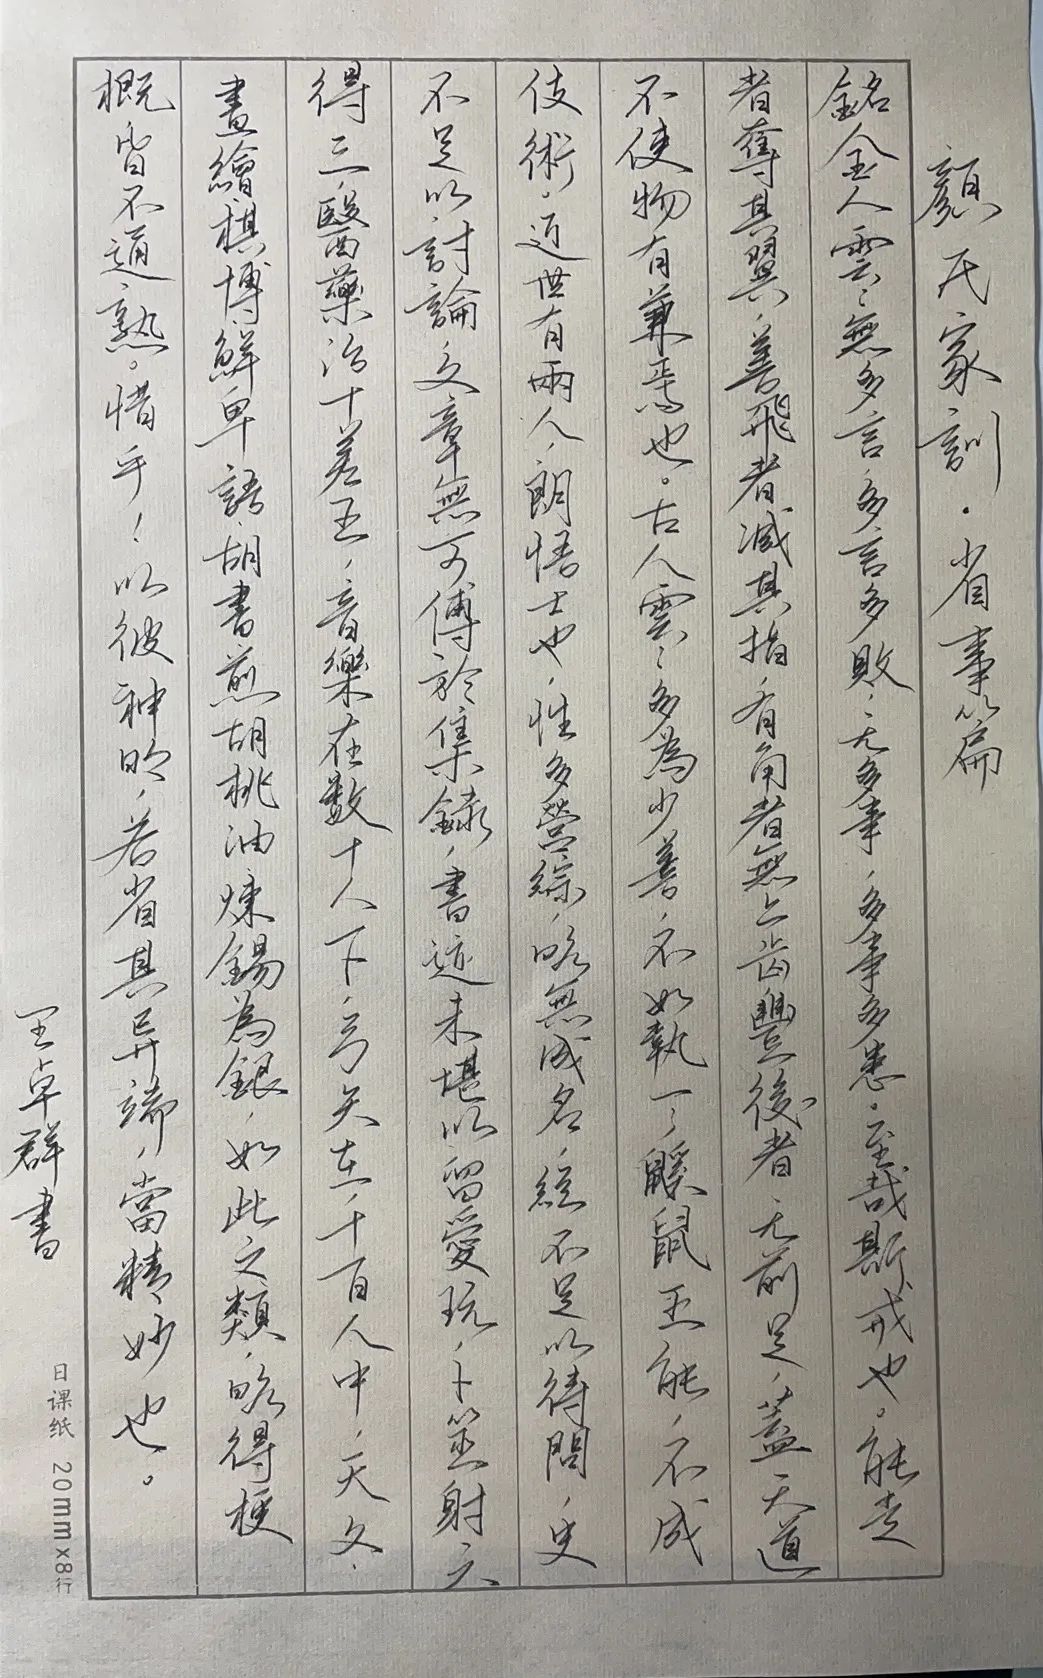 顔氏家訓·省事篇
銘金人雲：無多言，多言多敗；无多事，多事多患。至哉斯戒也。能走
者奪其翼，善飛者减其指，有角者無上齒，豐後者无前足，蓋天道
不使物有兼焉也。古人雲：多為少善，不如執一；鼷鼠五能，不成
伎術。近世有兩人，朗悟士也，性多營綜，略無成名，經不足以待問，史
不足以討論，文章無可傳於集録，書迹未堪以留愛玩，卜筮射六
得三，醫藥治十差五，音樂在数十人下，弓矢在千百人中，天文、
畫繪、棋博，鮮卑語、胡書，煎胡桃油，煉錫為銀，如此之類，略得梗
概，皆不通熟。惜乎！以彼神明，若省其异端，當精妙也。
王卓群書
日课纸 20mm×8行